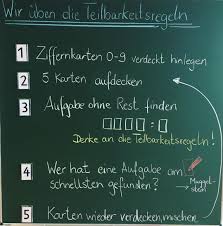 Wir üben die Teilbarkeitsregeln
1 Ziffernkarten 0-9 verdeckt hinlegen
2 5 Karten aufdecken
3 Aufgabe ohne Rest finden
□□□□ : □
Denke an die Teilbarkeitsregeln!
4 Wer hat eine Aufgabe am
schnellsten gefunden? → Muggel-
stein
5 Karten wieder verdecken, mischen